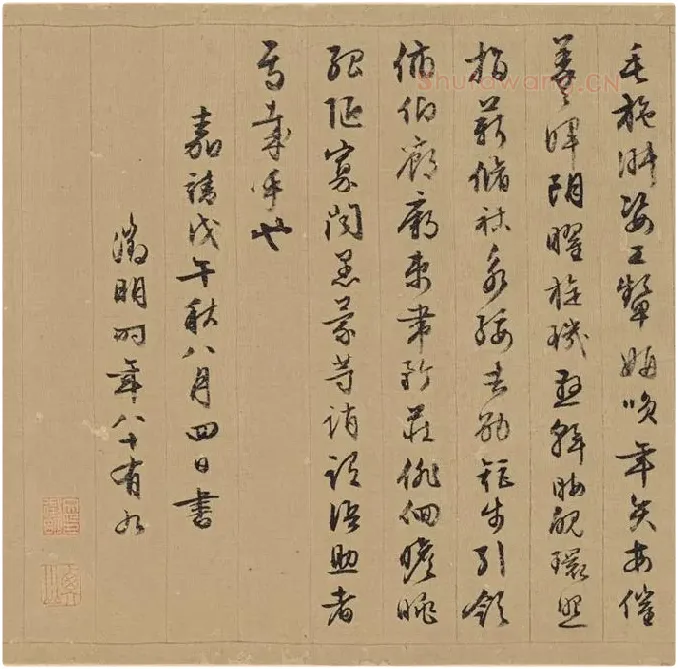 毛施淑姿工顰妍咲年矢每催
羲暉朗曜旋璣懸斡晦魄環照
指薪脩祜永綏吉劭矩步引領
俯仰廊廟束帶矜莊俳佪瞻眺
孤陋寡聞愚蒙等誚謂語助者
焉哉乎也
嘉靖戊午秋八月四日書
徵明時年八十有九
Shufawang.CN